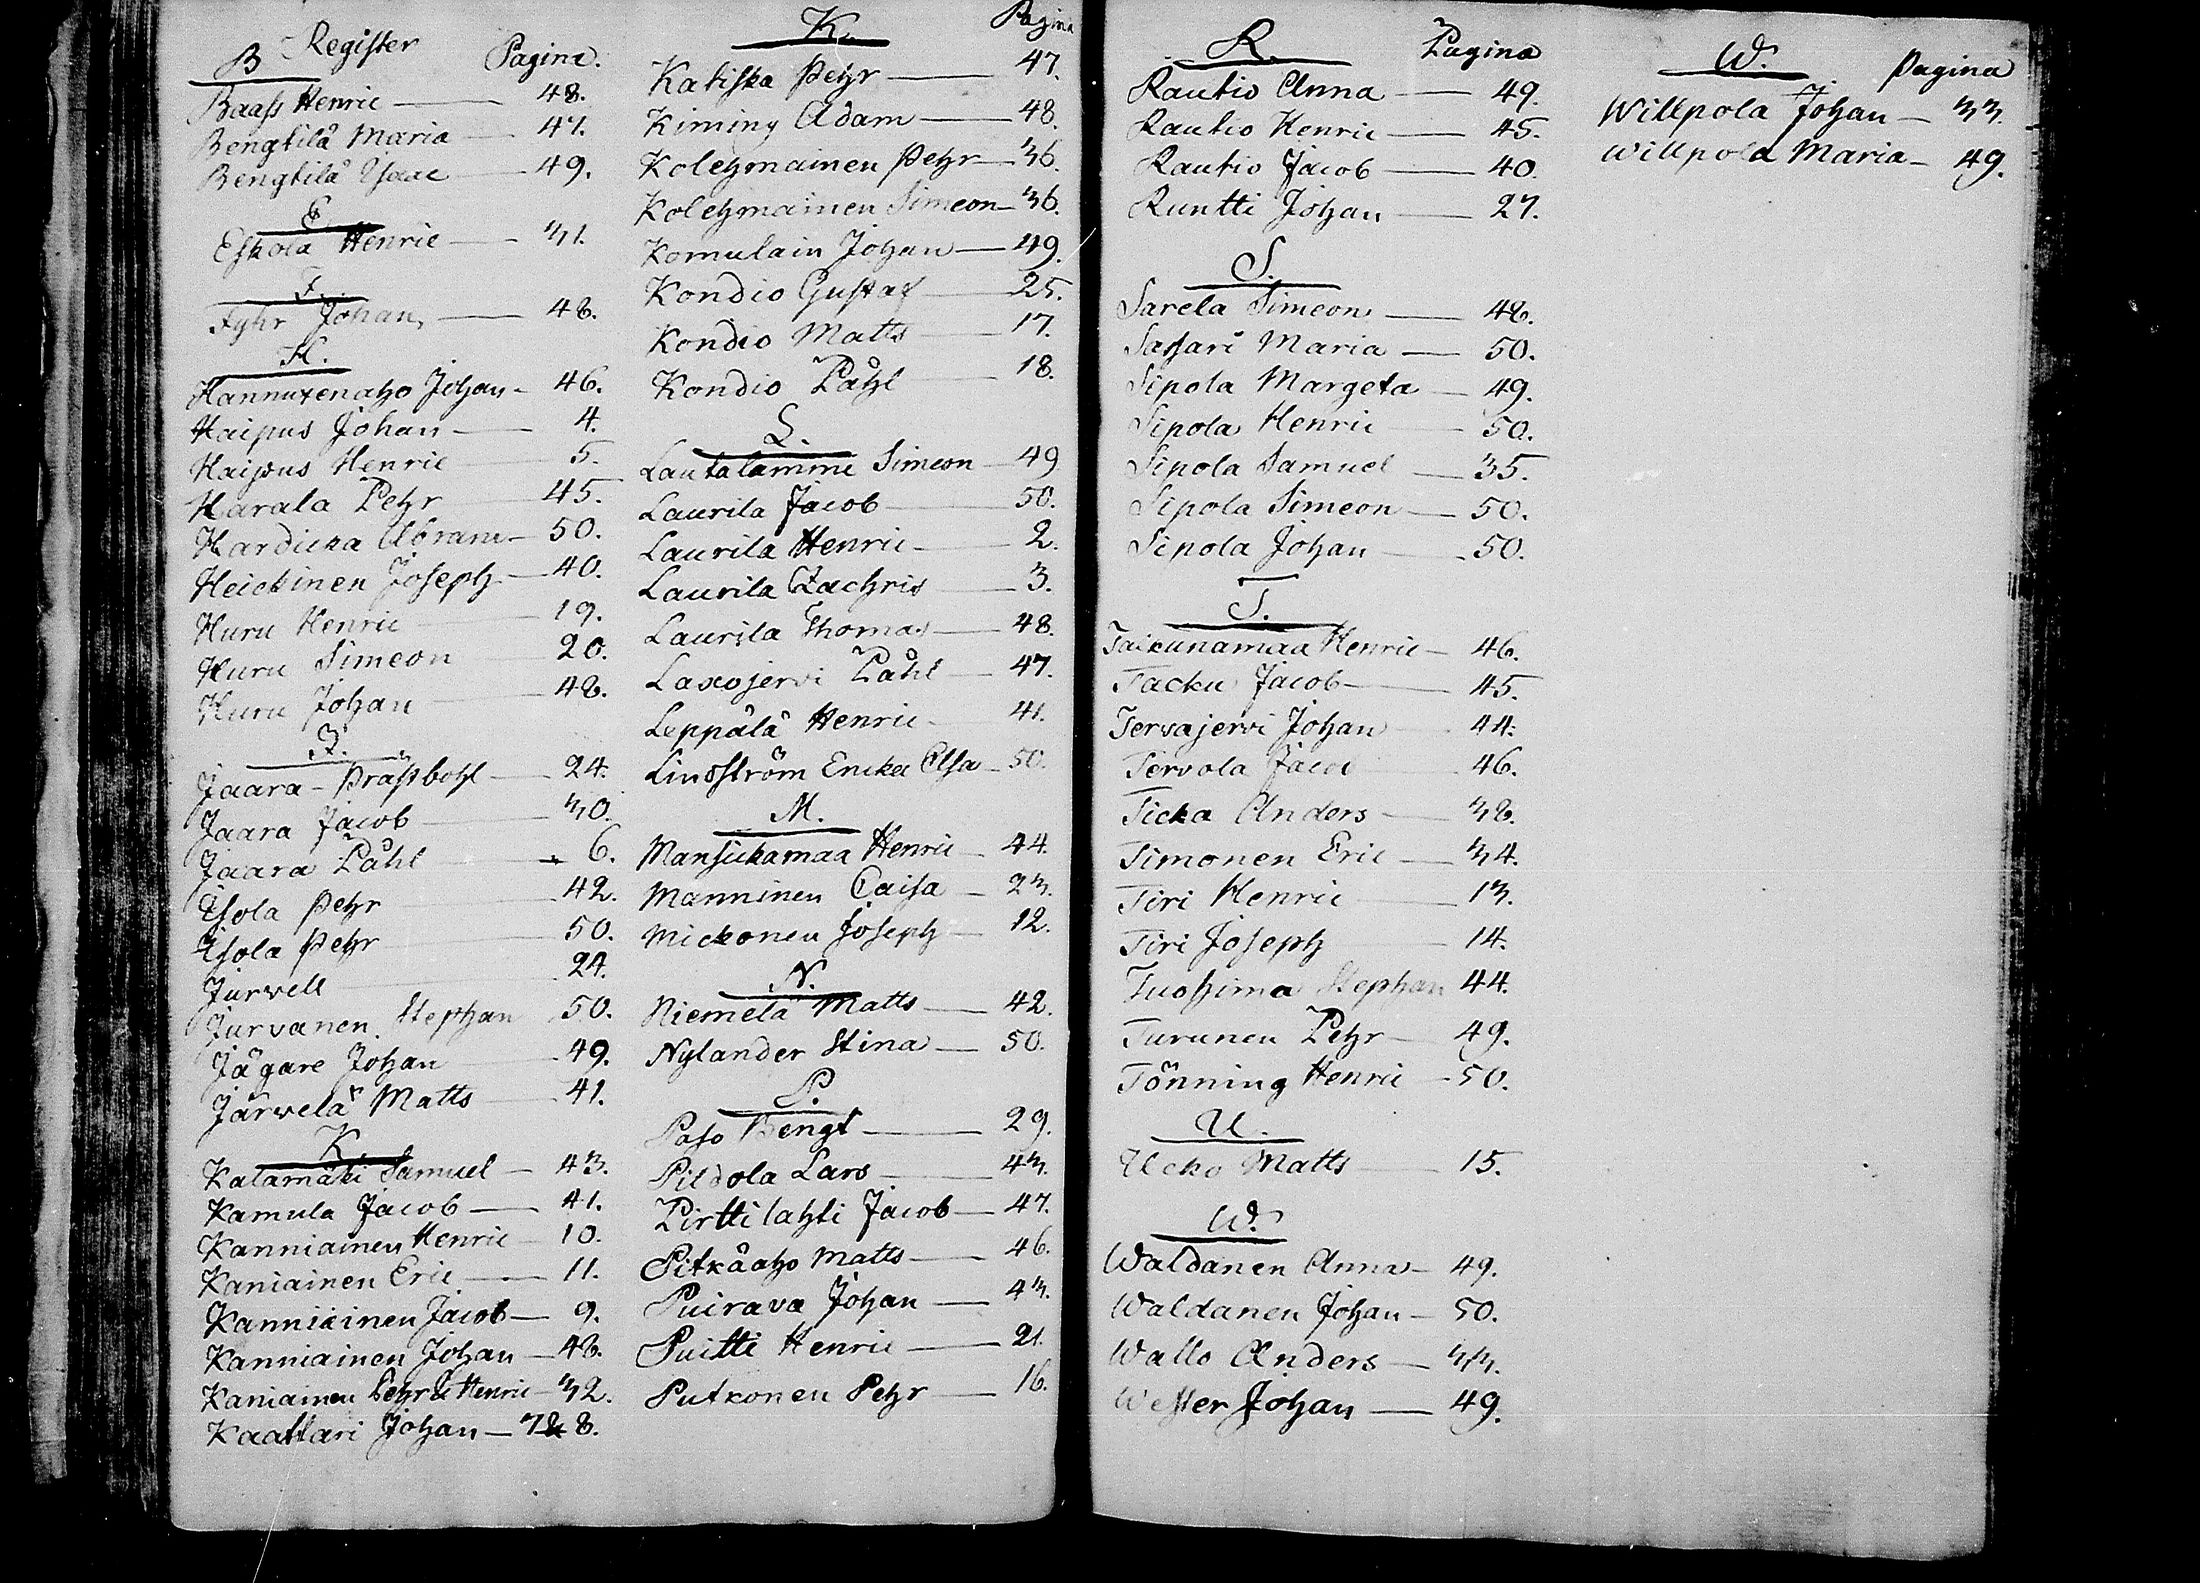 Register
B Pagina.
Baass Henric — 48.
Bengtilä Maria — 47.
Bengtilä Isaac — 49.
E
Eskola Henric — 31.
F.
Fyhr Johan, — 48.
H.
Hannuxenaho Johan — 46.
Haipus Johan — 4.
Haipus Henric — 5.
Harala Pehr 45.
Hardicka Abram — 50.
Heickinen Joseph — 40.
Huru Henric — 19.
Huru Simeon 20.
Huru Johan — 48.
J.
Jaara - Prästbohl — 24.
Jaara Jacob — 30.
Jaara Påhl — 6.
Isola Pehr — 42.
Isola Pehr 50.
Jurvell 24.
Jurvanen Stephan 50.
Jägare Johan — 49.
Järvelä Matts — 41.
K
Katamäki Samuel — 43.
Kamula Jacob — 41.
Kanniainen Henric — 10.
Kaniainen Eric — 11.
Kanniainen Jacob — 9.
Kanniainen Johan — 48.
Kaniainen Pehr & Henric — 32.
Kaattari Johan — 7 & 8.
K. Pagina
Katiska Pehr — 47.
Kiming Adam — 48.
Kolehmainen Pehr — 36.
Kolehmainen Simeon — 36.
Komulain Johan — 49.
Kondio Gustaf — 25.
Kondio Matts — 17.
Kondio Påhl — 18.
L.
Lautalamme Simeon — 49
Laurila Jacob — 50.
Laurila Henric — 2.
Laurila Zachris — 3.
Laurila Thomas — 48.
Laxojervi Påhl — 47.
Leppälä Henric — 41.
Lindström Ericka Elsa — 50.
M.
Mansickamaa Henric — 44.
Manninen Caisa — 23.
Mickonen Joseph — 12.
N.
Niemelä Matts — 42.
Nylander Stina — 50.
P.
Paso Bengt — 29.
Pildola Lars — 43.
Pirttilahti Jacob — 47.
Pitkäaho Matts — 46.
Puirava Johan — 43.
Puitti Henric — 21.
Putkonen Pehr — 16.
R. Pagina
Rautio Anna — 49.
Rautio Henric — 45.
Rautio Jacob — 40.
Runtti Johan — 27.
S.
Sarela Simeon — 48.
Sassari Maria — 50.
Sipola Margeta — 49.
Sipola Henric — 50.
Sipola Samuel — 35.
Sipola Simeon — 50.
Sipola Johan — 50.
T.
Taikunamaa Henric — 46.
Tacku Jacob — 45.
Tervajervi Johan — 44.
Tervola Jacob 46.
Ticka Anders — 38.
Timonen Eric — 34.
Tiri Henric — 13.
Tiri Joseph — 14.
Tuohima Stephan 44.
Turunen Pehr — 49.
Tönning Henric — 50.
U.
Ucko Matts — 15.
W.
Waldanen Anna — 49.
Waldanen Johan — 50.
Wallo Anders — 33.
Wester Johan — 49.
W. Pagina
Willpola Johan — 33.
Willpola Maria — 49.